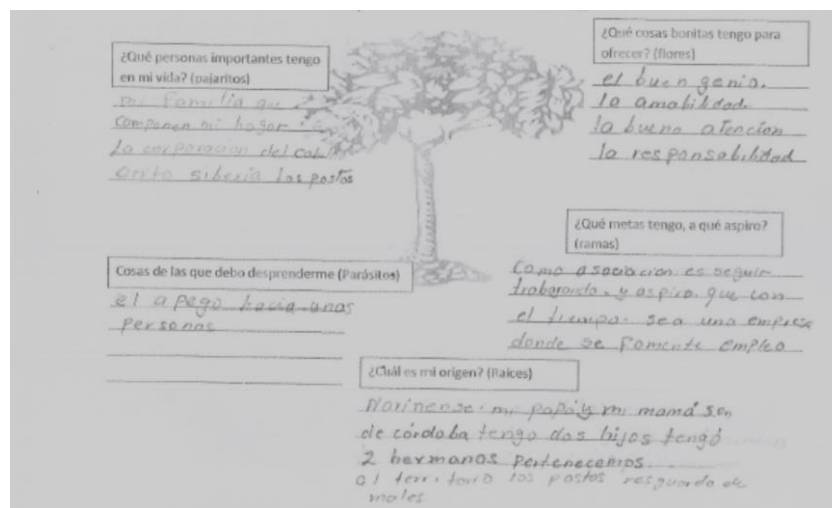 ¿Qué personas importantes tengo
en mi vida? (pajaritos)
mi Familia que
componen mi hogar
La corporación del
orito siberia los pastos
¿Qué cosas bonitas tengo para
ofrecer? (flores)
el buen genio.
la amabilidad.
la buena atencion
la responsabilidad
¿Qué metas tengo, a qué aspiro?
(ramas)
Como asociacion es seguir
trabajando. y aspiro que con
el tiempo. sea una empresa
donde se Fomente empleo
Cosas de las que debo desprenderme (Parásitos)
el apego hacia unas
personas
¿Cuál es mi origen? (Raíces)
Narinense. mi papá y mi mamá son
de córdoba tengo dos hijos tengó
2 hermanos pertenecemos
al territorio los pastos resguardo de
males